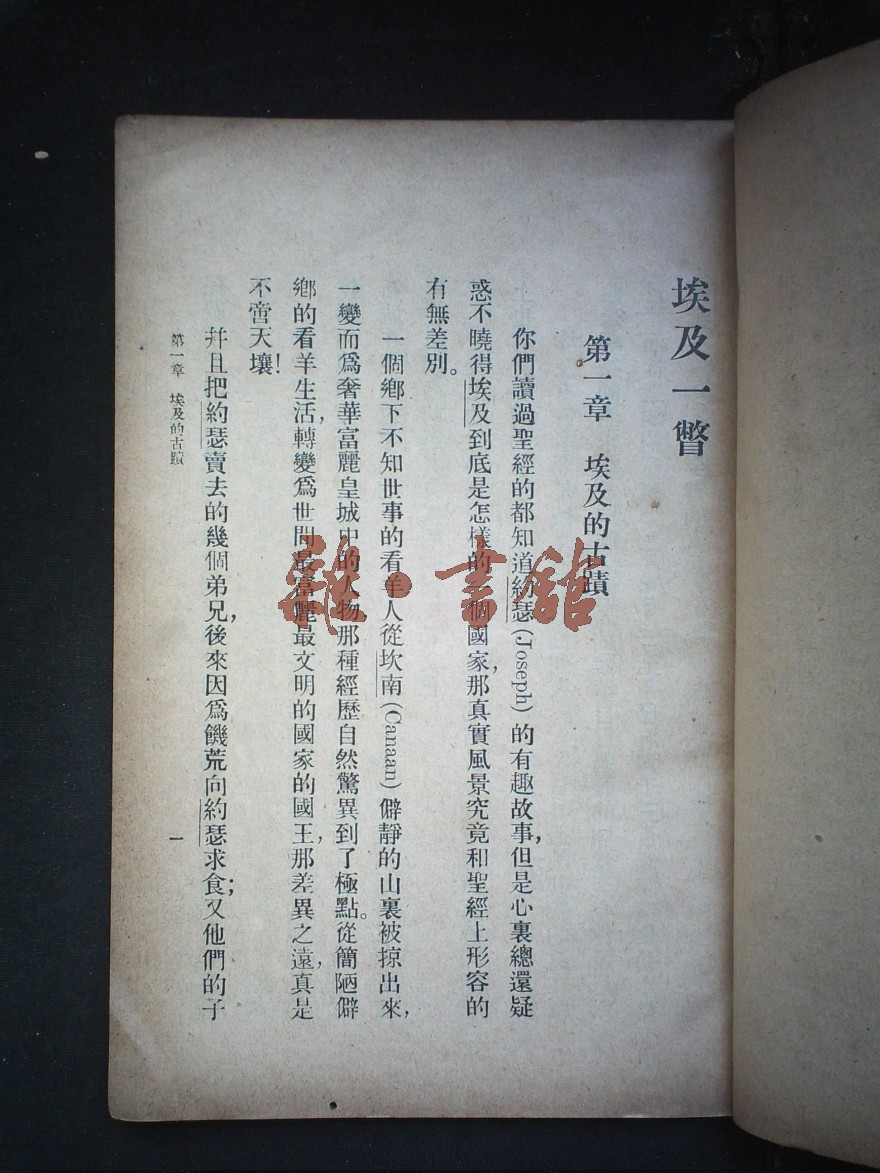 埃及一瞥
第一章　埃及的古蹟
你們讀過聖經的都知道約瑟(Joseph)的有趣故事，但是心裏總還疑
惑不曉得埃及到底是怎樣的一個國家，那真實風景究竟和聖經上形容的
有無差別。
一個鄉下不知世事的看羊人從坎南(Canaan)僻靜的山裏被掠出來，
一變而爲奢華富麗皇城中的人物那種經歷自然驚異到了極點。從簡陋僻
鄉的看羊生活，轉變爲世間最富麗最文明的國家的國王，那差異之遠，真是
不啻天壤！
幷且把約瑟賣去的幾個弟兄，後來因爲饑荒向約瑟求食；又他們的子
第一章　埃及的古蹟
一
雜·書館